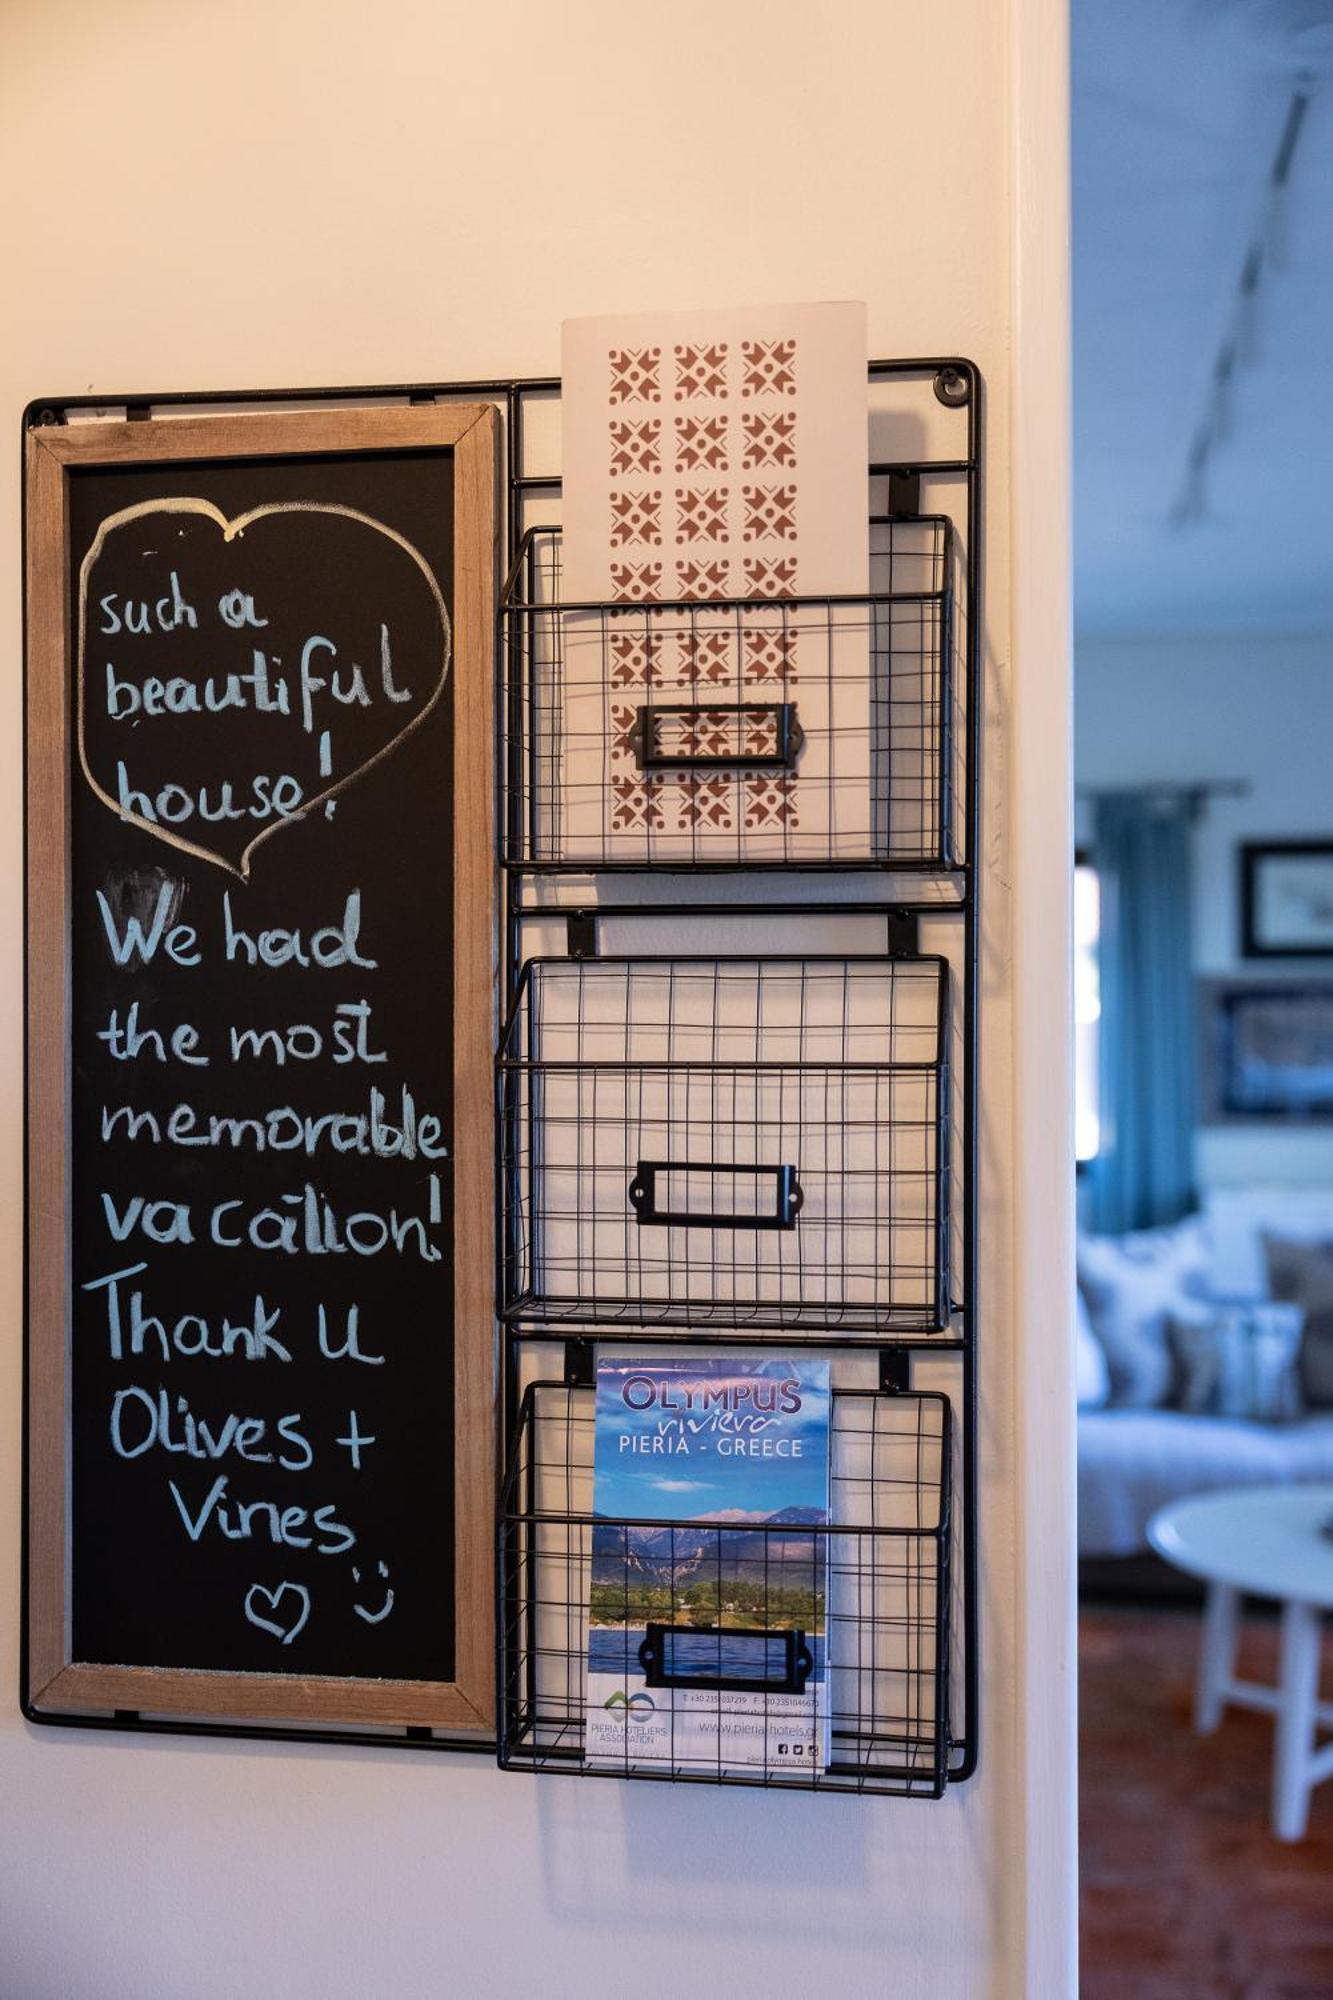 such a
beautiful
house!
We had
the most
memorable
vacation!
Thank u
Olives +
Vines
OLYMPUS
riviera
PIERIA - GREECE
PIERIA HOTELIERS
ASSOCIATION
www.pieria-hotels.gr